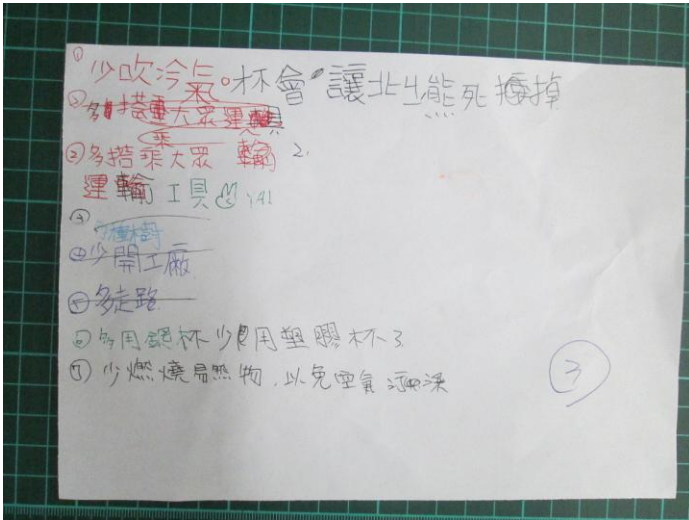 ① 少吹冷氣。杯會 讓北山熊死掉
② 多搭乘大眾運輸具
② 多搭乘大眾 輸 2.
運輸工具 ya!
③
多種樹
④ 少開工廠
⑤ 多走路
⑥ 多用鋼杯少用塑膠杯 3
⑦ 少燃燒易燃物，以免空氣污染
3